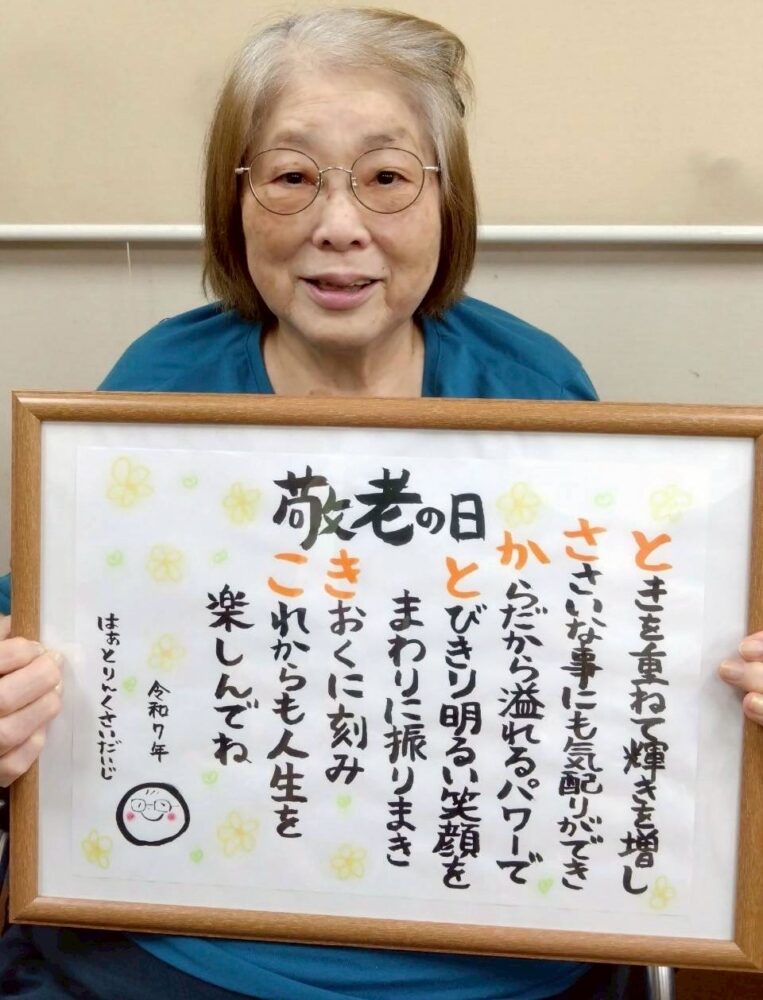 敬老の日
ときを重ねて輝きを増し
ささいな事にも気配りができ
からだから溢れるパワーで
とびきり明るい笑顔を
まわりに振りまき
きおくに刻み
これからも人生を
楽しんでね
令和7年
はぁとりんくさいだいじ